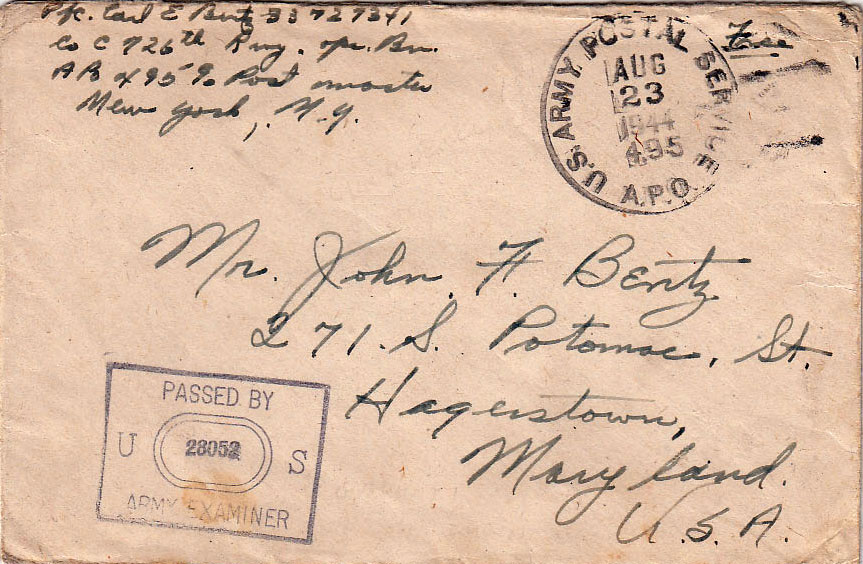 Pfc. Carl E Bentz 33727341
Co C 726th Rwy. Opr. Bn.
AP 495 % Post master
New York, N.Y.
U.S. ARMY POSTAL SERVICE
AUG
23
1944
495
A.P.O.
Free
Mr. John F. Bentz
271. S. Potomac. St.
Hagerstown,
Maryland.
U.S.A.
PASSED BY
U 28052 S
ARMY EXAMINER